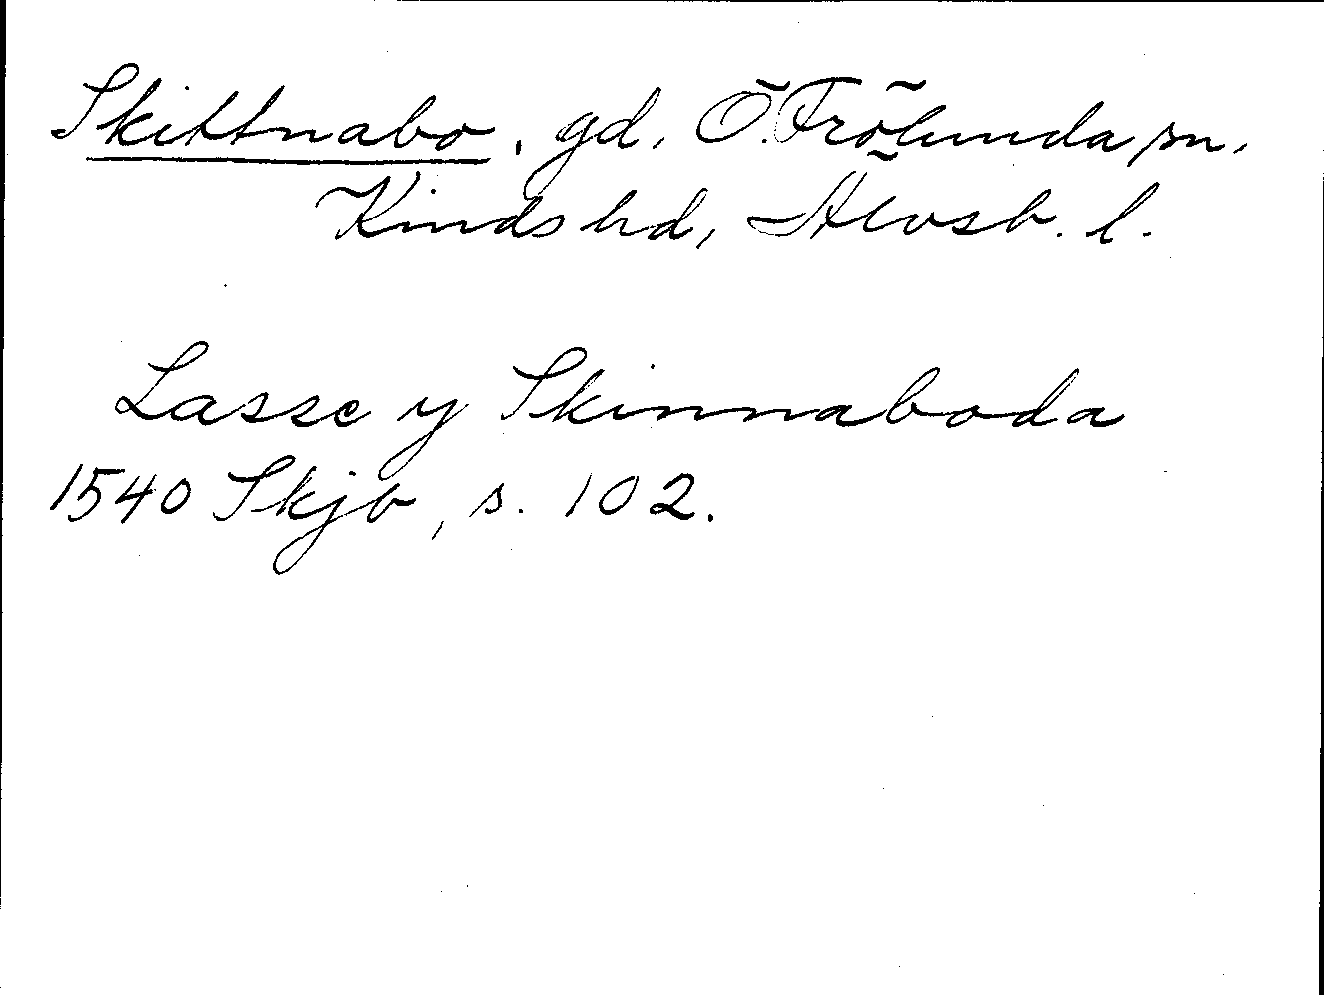 Skittnabo, gd, Ö. Frölunda sn,
Kinds hd, Älvsb. l.
Lasse y Skinnaboda
1540 Skjb, s. 102.